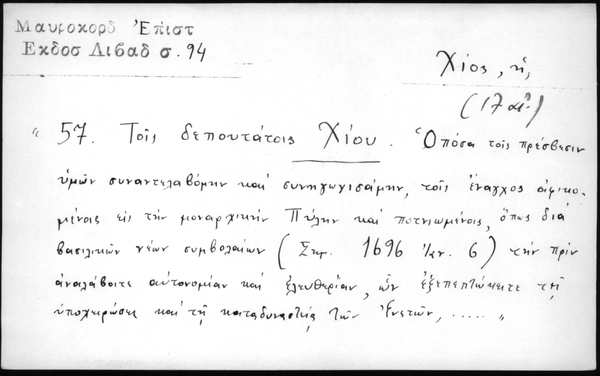 Μαυροκορδ Ἐπιστ
Εκδοσ Λιβαδ σ. 94
Χίος, ἡ,
(17 αἰ.)
" 57. Τοῖς δεπουτάτοις Χίου. Ὁπόσα τοῖς πρέσβεσιν
ὑμῶν συναντελαβόμην καὶ συνηγωγισάμην, τοῖς ἔναγχος ἀφικο-
μένοις εἰς τὴν μοναρχικὴν Πύλην καὶ ποτνιωμένοις, ὅπως διὰ
βασιλικῶν νέων συμβολαίων (Σημ. 1696 Ἰαν. 6) τὴν πρὶν
ἀναλάβοιτε αὐτονομίαν καὶ ἐλευθερίαν, ὧν ἐξεπεπτώκειτε τῇ
ὑποχειρώσει καὶ τῇ καταδυναστείᾳ τῶν Ἐνετῶν, ..... "